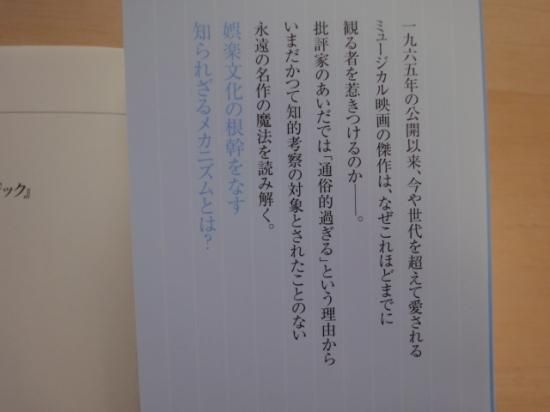 一九六五年の公開以来、今や世代を超えて愛される
ミュージカル映画の傑作は、なぜこれほどまでに
観る者を惹きつけるのか――。
批評家のあいだでは「通俗的過ぎる」という理由から
いまだかつて知的考察の対象とされたことのない
永遠の名作の魔法を読み解く。
娯楽文化の根幹をなす
知られざるメカニズムとは?
ック』